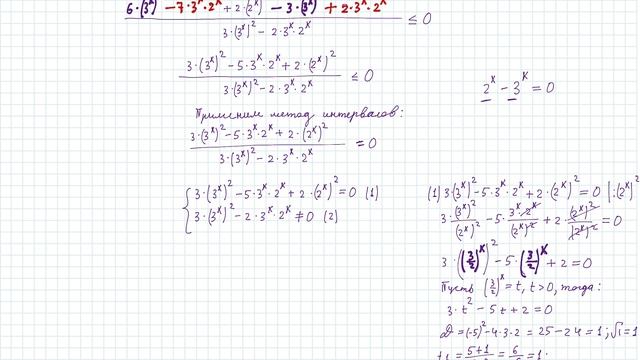 6·(3^x)² − 7·3^x·2^x + 2·(2^x)² − 3·(3^x)² + 2·3^x·2^x
3·(3^x)² − 2·3^x·2^x
≤ 0
3·(3^x)² − 5·3^x·2^x + 2·(2^x)²
3·(3^x)² − 2·3^x·2^x
≤ 0
Применим метод интервалов:
3·(3^x)² − 5·3^x·2^x + 2·(2^x)²
3·(3^x)² − 2·3^x·2^x
= 0
3·(3^x)² − 5·3^x·2^x + 2·(2^x)² = 0 (1)
3·(3^x)² − 2·3^x·2^x ≠ 0 (2)
2^x − 3^x = 0
(1) 3·(3^x)² − 5·3^x·2^x + 2·(2^x)² = 0 |:(2^x)²
3·(3^x)²/(2^x)² − 5·3^x·2^x/(2^x)² + 2·(2^x)²/(2^x)² = 0
3·((3/2)^x)² − 5·(3/2)^x + 2 = 0
Пусть (3/2)^x = t, t > 0, тогда:
3·t² − 5t + 2 = 0
D = (−5)² − 4·3·2 = 25 − 24 = 1; √1 = 1
t₁ = (5+1)/ = 6/ = 1;